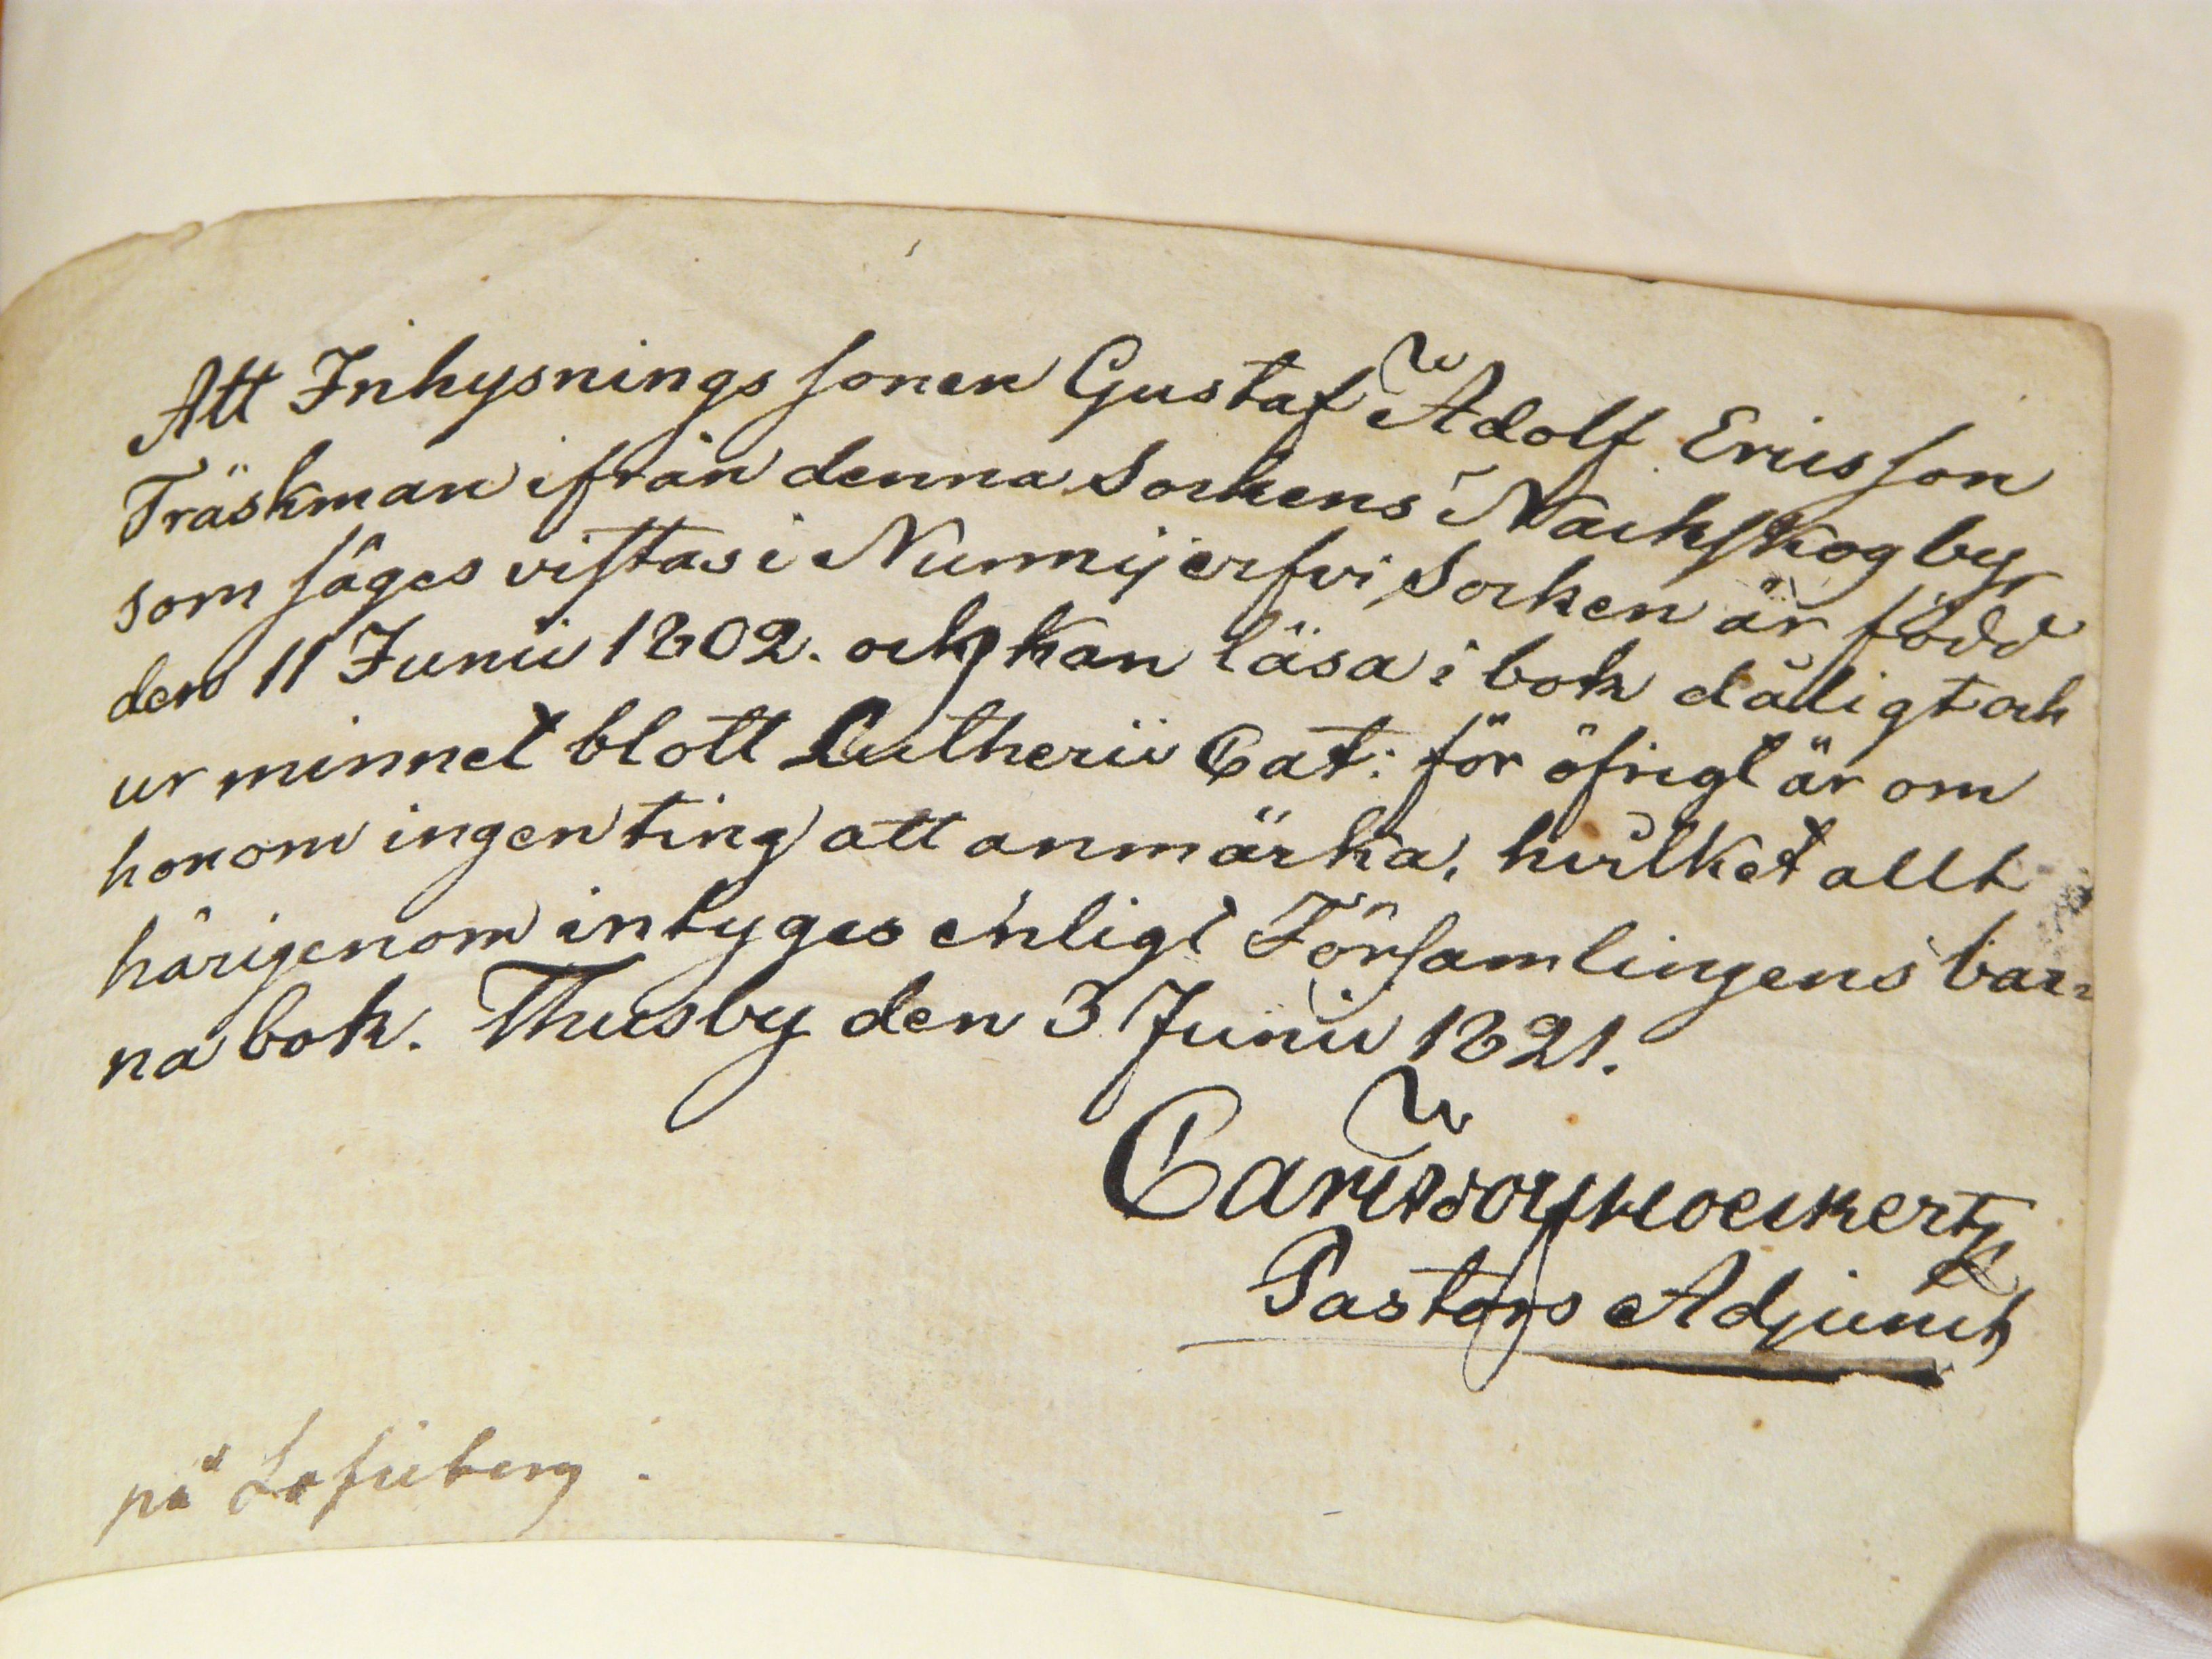 Att Inhysnings sonen Gustaf Adolf Ericsson
Träskman ifrån denna Sockens Nackskog by,
som säges vistas i Nummijerfvi Socken är född
den 11 Junii 1802. och kan läsa i bok dåligt och
ur minnet blott Lutherii Cat: för öfrigt är om
honom ingenting att anmärka, hvilket allt
härigenom intygas enligt Församlingens bar=
na bok. Thusby den 3 Junii 1821.
Pastors Adjunct
på